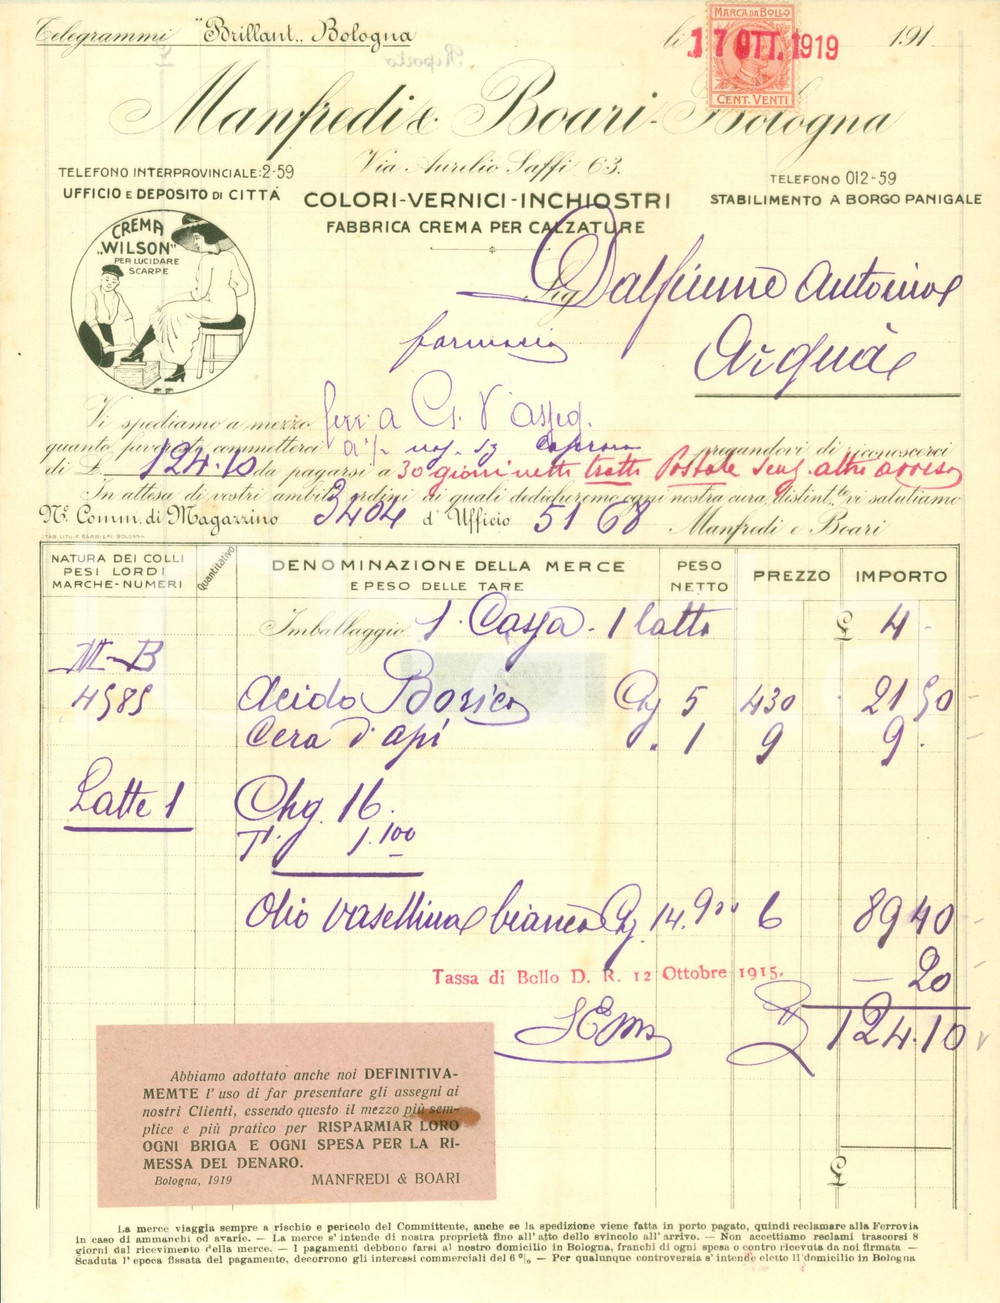 Telegrammi "Brillant„ Bologna
li 191
17 OTT. 1919
MARCA DA BOLLO
CENT. VENTI
Riporto
Manfredi & Boari - Bologna
Via Aurelio Saffi 63.
TELEFONO INTERPROVINCIALE: 2-59
UFFICIO E DEPOSITO DI CITTÀ
TELEFONO 012-59
STABILIMENTO A BORGO PANIGALE
COLORI-VERNICI-INCHIOSTRI
FABBRICA CREMA PER CALZATURE
CREMA
„WILSON"
PER LUCIDARE
SCARPE
Sig Dalfiume Antonio
farmacia
Arquà
Vi spediamo a mezzo ferr. a G. V. asseg.
quanto favoriste commetterci pregandovi di riconoscerci
di £ 124.10 da pagarsi a 30 giorni netti tratta Postale senz. altro avviso
In attesa di vostri ambiti ordini ai quali dedicheremo ogni nostra cura, distint.te vi salutiamo
N.º Comm. di Magazzino 3404 d' Ufficio 5168 Manfredi e Boari
STAB. LITO-F. BARBIERI, BOLOGNA
NATURA DEI COLLI
PESI LORDI
MARCHE-NUMERI
Quantitativo
DENOMINAZIONE DELLA MERCE
E PESO DELLE TARE
PESO
NETTO
PREZZO
IMPORTO
Imballaggio 1 Cassa - 1 latta £ 4 -
M-B
4585 Acido Borico Chg 5 430 21 50
Cera d'api " 1 9 9 .
Latte 1 Chg. 16.
T. 1.100
Olio vasellina bianco Chg. 14.900 6 89 40
Tassa di Bollo D. R. 12 Ottobre 1915. — 20
£ 124.10
Abbiamo adottato anche noi DEFINITIVA-
MEMTE l' uso di far presentare gli assegni ai
nostri Clienti, essendo questo il mezzo più sem-
plice e più pratico per RISPARMIAR LORO
OGNI BRIGA E OGNI SPESA PER LA RI-
MESSA DEL DENARO.
Bologna, 1919 MANFREDI & BOARI
£
La merce viaggia sempre a rischio e pericolo del Committente, anche se la spedizione viene fatta in porto pagato, quindi reclamare alla Ferrovia
in caso di ammanchi od avarie. — La merce s' intende di nostra proprietà fino all' atto dello svincolo all' arrivo. — Non accettiamo reclami trascorsi 8
giorni dal ricevimento della merce. — I pagamenti debbono farsi al nostro domicilio in Bologna, franchi di ogni spesa o contro ricevuta da noi firmata —
Scaduta l' epoca fissata del pagamento, decorrono gli interessi commerciali del 6 % — Per qualunque controversia s' intende eletto il domicilio in Bologna